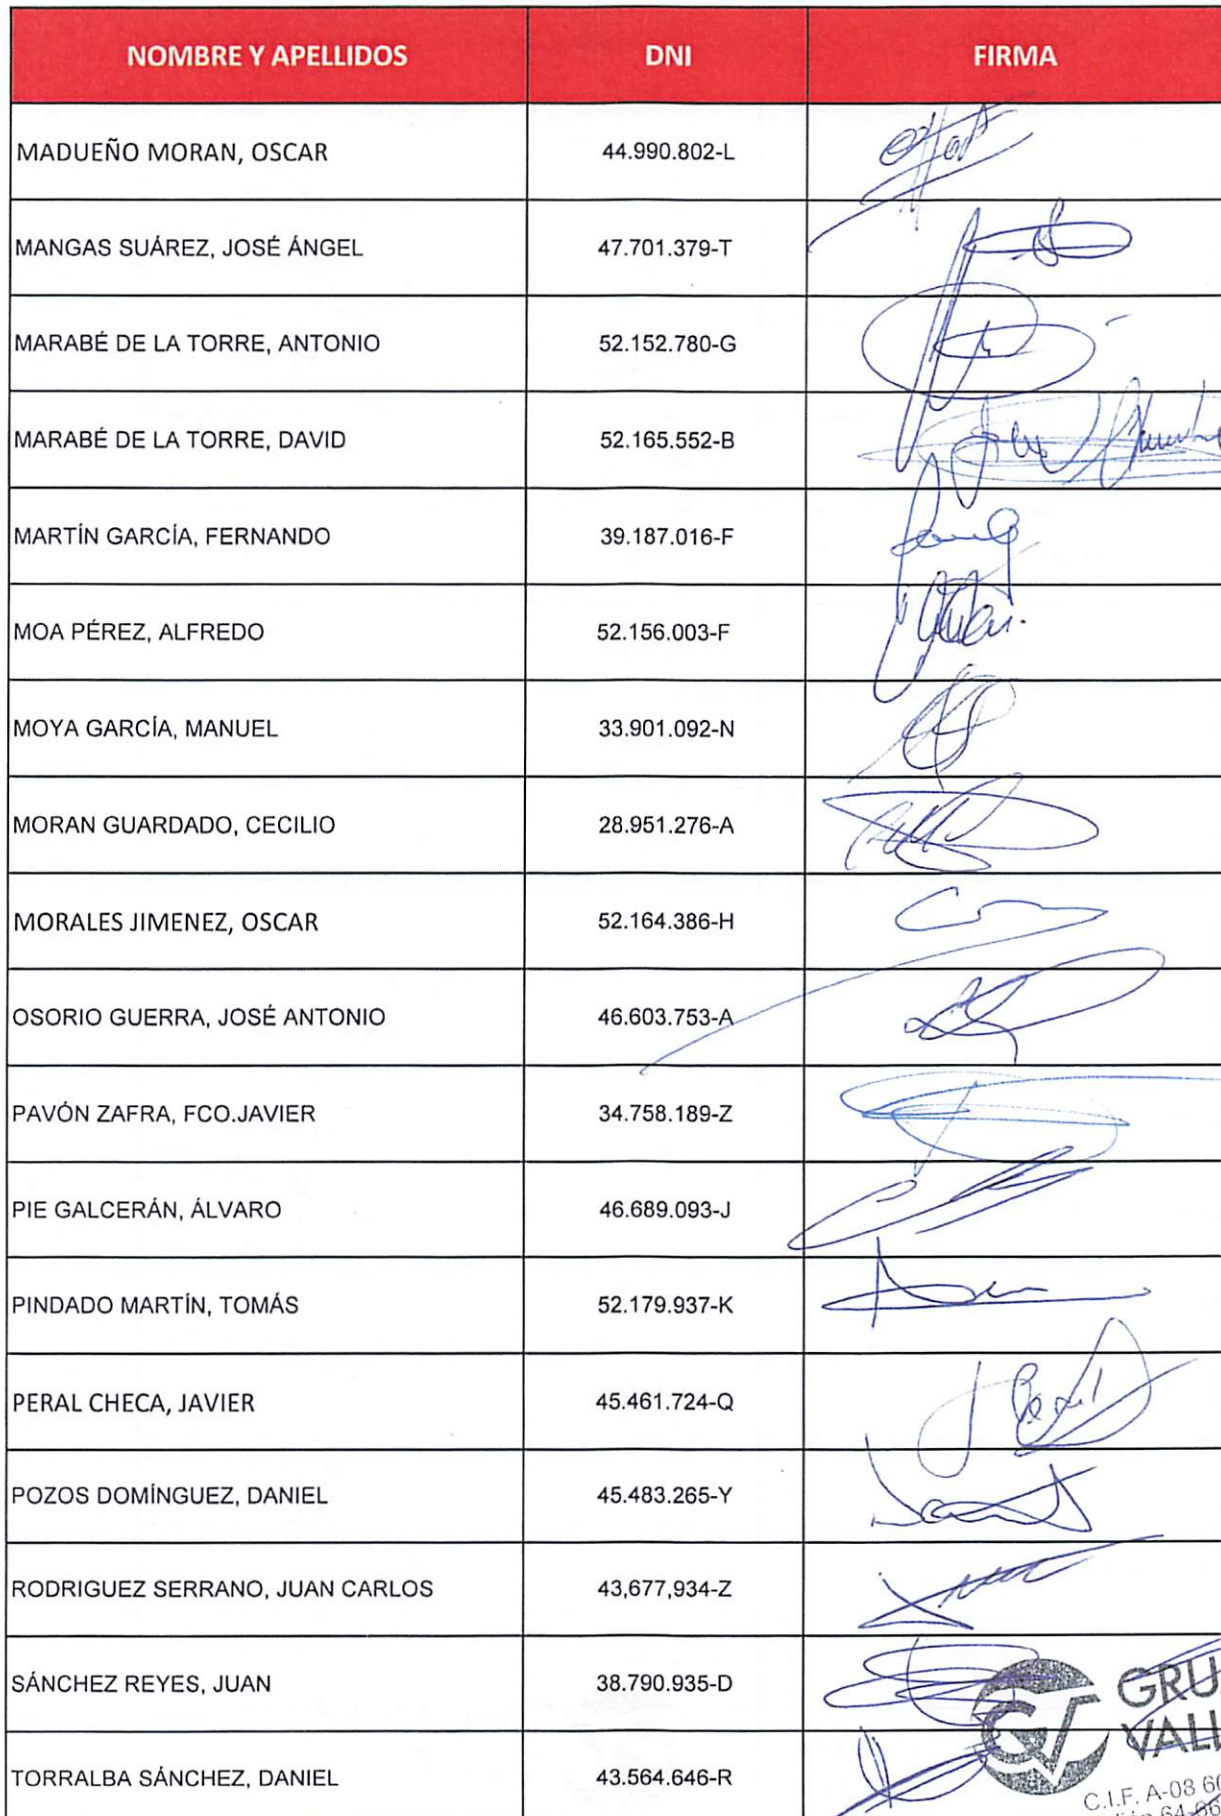 NOMBRE Y APELLIDOS DNI FIRMA
MADUEÑO MORAN, OSCAR 44.990.802-L
MANGAS SUÁREZ, JOSÉ ÁNGEL 47.701.379-T
MARABÉ DE LA TORRE, ANTONIO 52.152.780-G
MARABÉ DE LA TORRE, DAVID 52.165.552-B
MARTÍN GARCÍA, FERNANDO 39.187.016-F
MOA PÉREZ, ALFREDO 52.156.003-F
MOYA GARCÍA, MANUEL 33.901.092-N
MORAN GUARDADO, CECILIO 28.951.276-A
MORALES JIMENEZ, OSCAR 52.164.386-H
OSORIO GUERRA, JOSÉ ANTONIO 46.603.753-A
PAVÓN ZAFRA, FCO.JAVIER 34.758.189-Z
PIE GALCERÁN, ÁLVARO 46.689.093-J
PINDADO MARTÍN, TOMÁS 52.179.937-K
PERAL CHECA, JAVIER 45.461.724-Q
POZOS DOMÍNGUEZ, DANIEL 45.483.265-Y
RODRIGUEZ SERRANO, JUAN CARLOS 43,677,934-Z
SÁNCHEZ REYES, JUAN 38.790.935-D
GRU
VALL
TORRALBA SÁNCHEZ, DANIEL 43.564.646-R
C.I.F. A-08 60